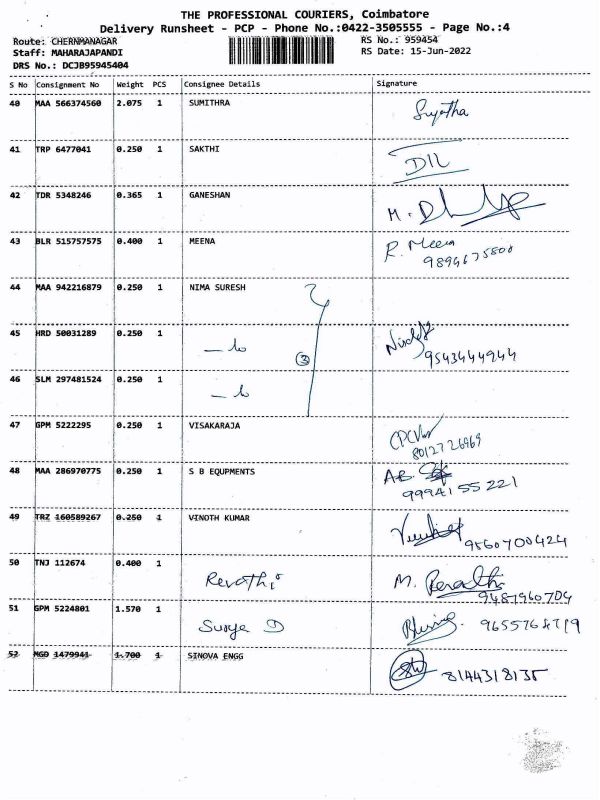 THE PROFESSIONAL COURIERS, Coimbatore
Delivery Runsheet - PCP - Phone No.:0422-3505555 - Page No.:4
Route: CHERNMANAGAR RS No.: 959454
Staff: MAHARAJAPANDI RS Date: 15-Jun-2022
DRS No.: DCJB95945404
S No Consignment No Weight PCS Consignee Details Signature
40 MAA 566374560 2.075 1 SUMITHRA Sujatha
41 TRP 6477041 0.250 1 SAKTHI
42 TDR 5348246 0.365 1 GANESHAN M.
43 BLR 515757575 0.400 1 MEENA R. Meena
9894675800
44 MAA 942216879 0.250 1 NIMA SURESH
45 HRD 50031289 0.250 1
9543444944
3
46 SLM 297481524 0.250 1
47 GPM 5222295 0.250 1 VISAKARAJA
8012726969
48 MAA 286970775 0.250 1 S B EQUPMENTS
9994155221
49 TRZ 160589267 0.250 1 VINOTH KUMAR
9560700424
50 TNJ 112674 0.400 1 Revathi M. Revathi
9487960704
51 GPM 5224801 1.570 1 Surya D
52 MGD 1479941 1.700 1 SINOVA ENGG 8144318135